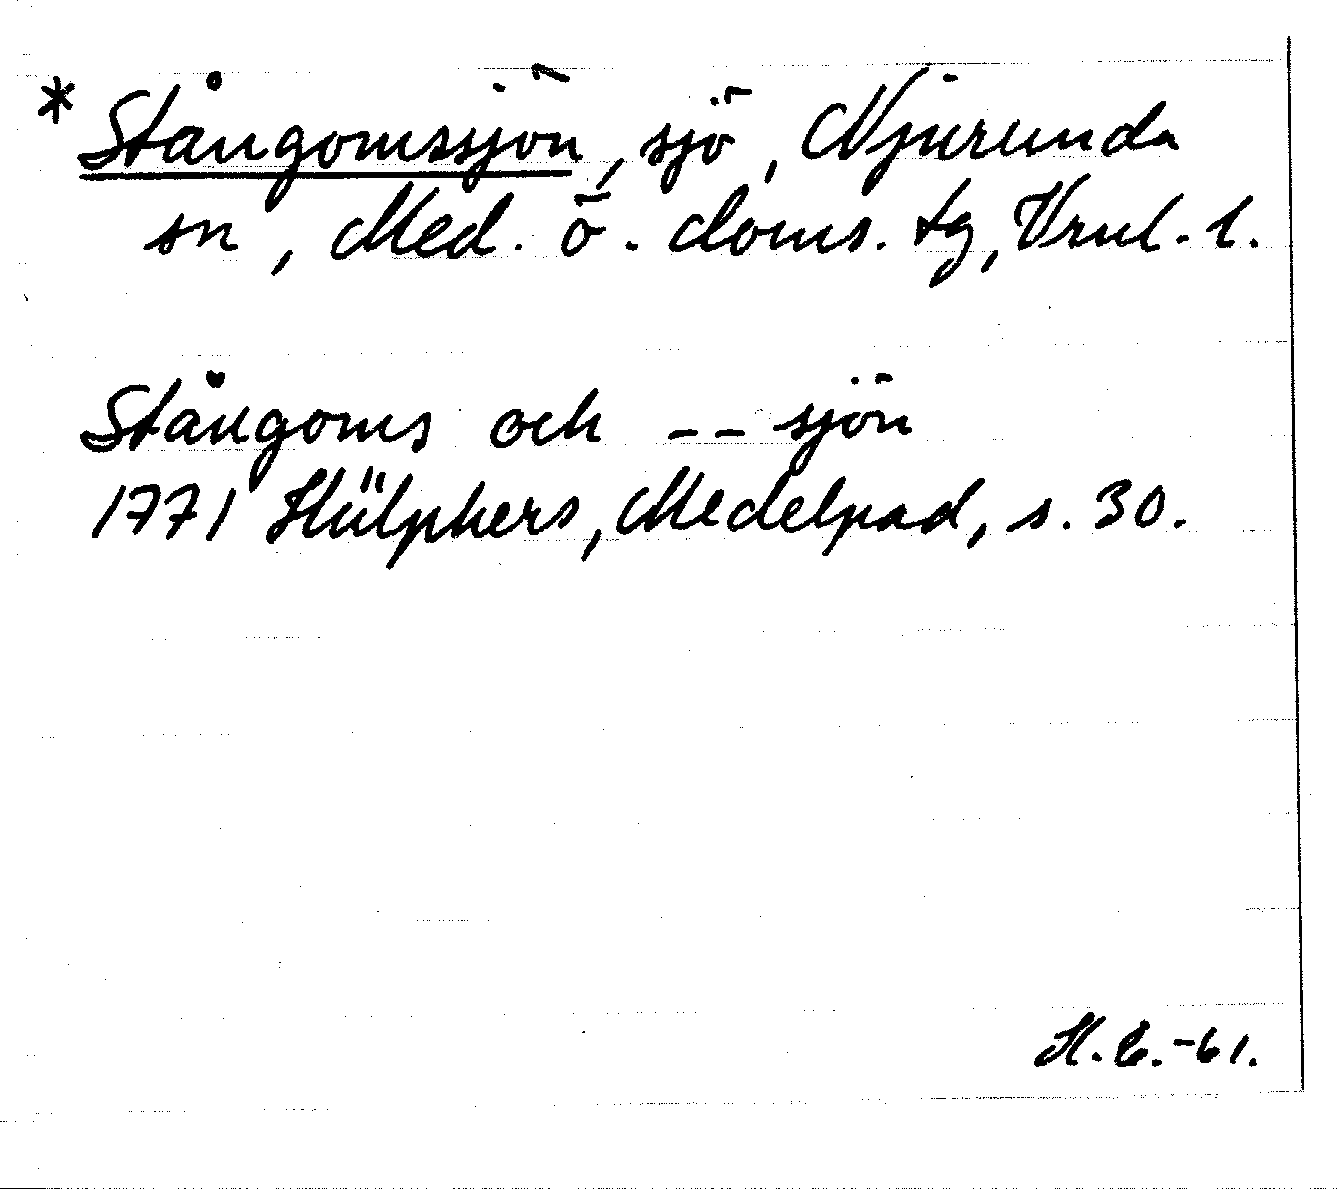 * Stångomssjön, sjö, Njurunda
sn, Med. ö. doms. tg, Vrnl. l.
Stångoms och -- sjön
1771 Hülphers, Medelpad, s. 30.
H. C. -61.